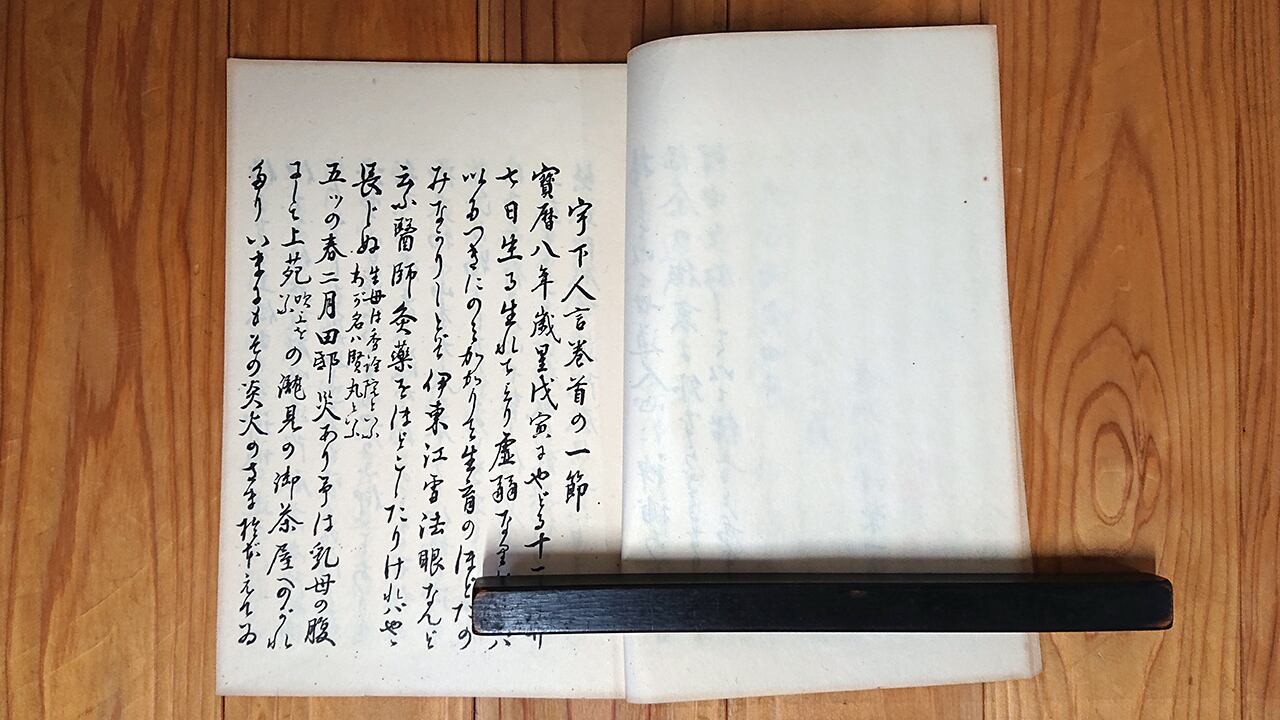 宇下人言巻首の一節
寶暦八年歳星戊寅にやどる十一
七日生る生れてより虚弱な
以あつきにのみかかりて生育のほどたの
みなかりしとぞ伊東江雪法眼なんど
云ふ醫師灸藥をほどこしたりければやゝ
長じぬ
生母は香詮院といふ
わが名ハ賢丸といふ
五ツの春二月田邸災あり予は乳母の腹
にして上苑
吹上を
云ふ
の瀧見の御茶屋へのがれ
たり いまるもその炎火のさま